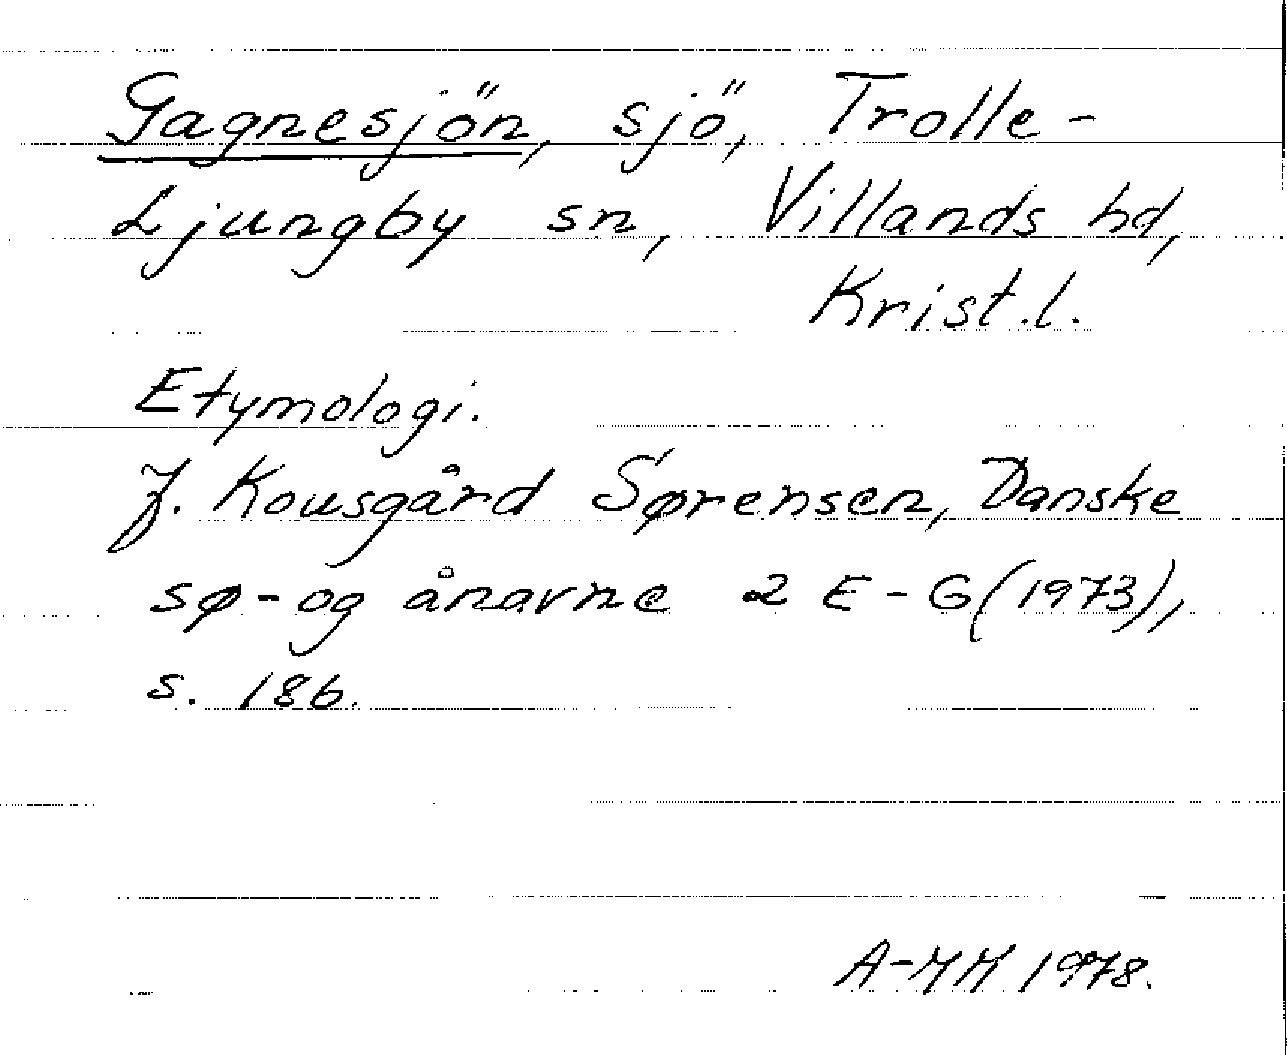 Gagnesjön, sjö, Trolle-
Ljungby sn, Villands hd,
Krist.l.
Etymologi.
J. Kousgård Sørensen, Danske
sø- og ånavne 2 E-G (1973),
s. 186.
A-MM 1978.